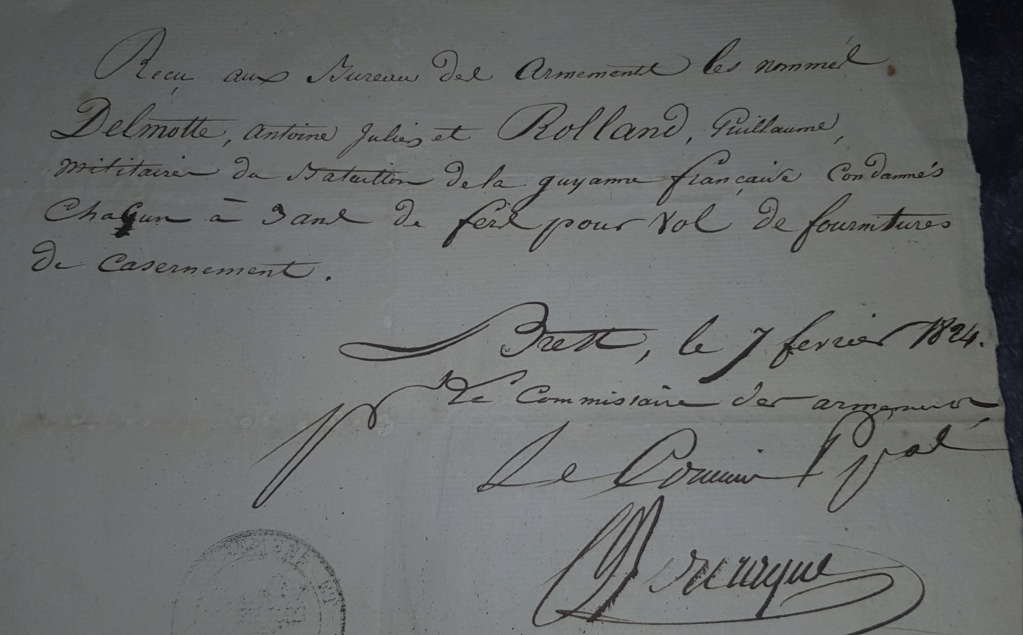 Reçu aux Bureau des Armements les nommés
Delmotte, Antoine Jules et Rolland, Guillaume,
militaires du Bataillon de la guyanne française Condamnés
Chaqun à 3 ans de fers pour Vol de fournitures
de Casernement.
Brest, le 7 fevrier 1824.
Pr Le Commissaire des armements
Le Commis Ppal
ET